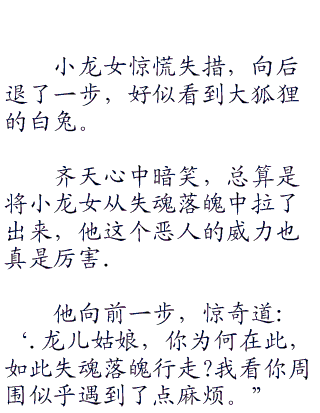 小龙女惊慌失措，向后
退了一步，好似看到大狐狸
的白兔。
齐天心中暗笑，总算是
将小龙女从失魂落魄中拉了
出来，他这个恶人的威力也
真是厉害.
他向前一步，惊奇道：
‘.龙儿姑娘，你为何在此，
如此失魂落魄行走?我看你周
围似乎遇到了点麻烦。”